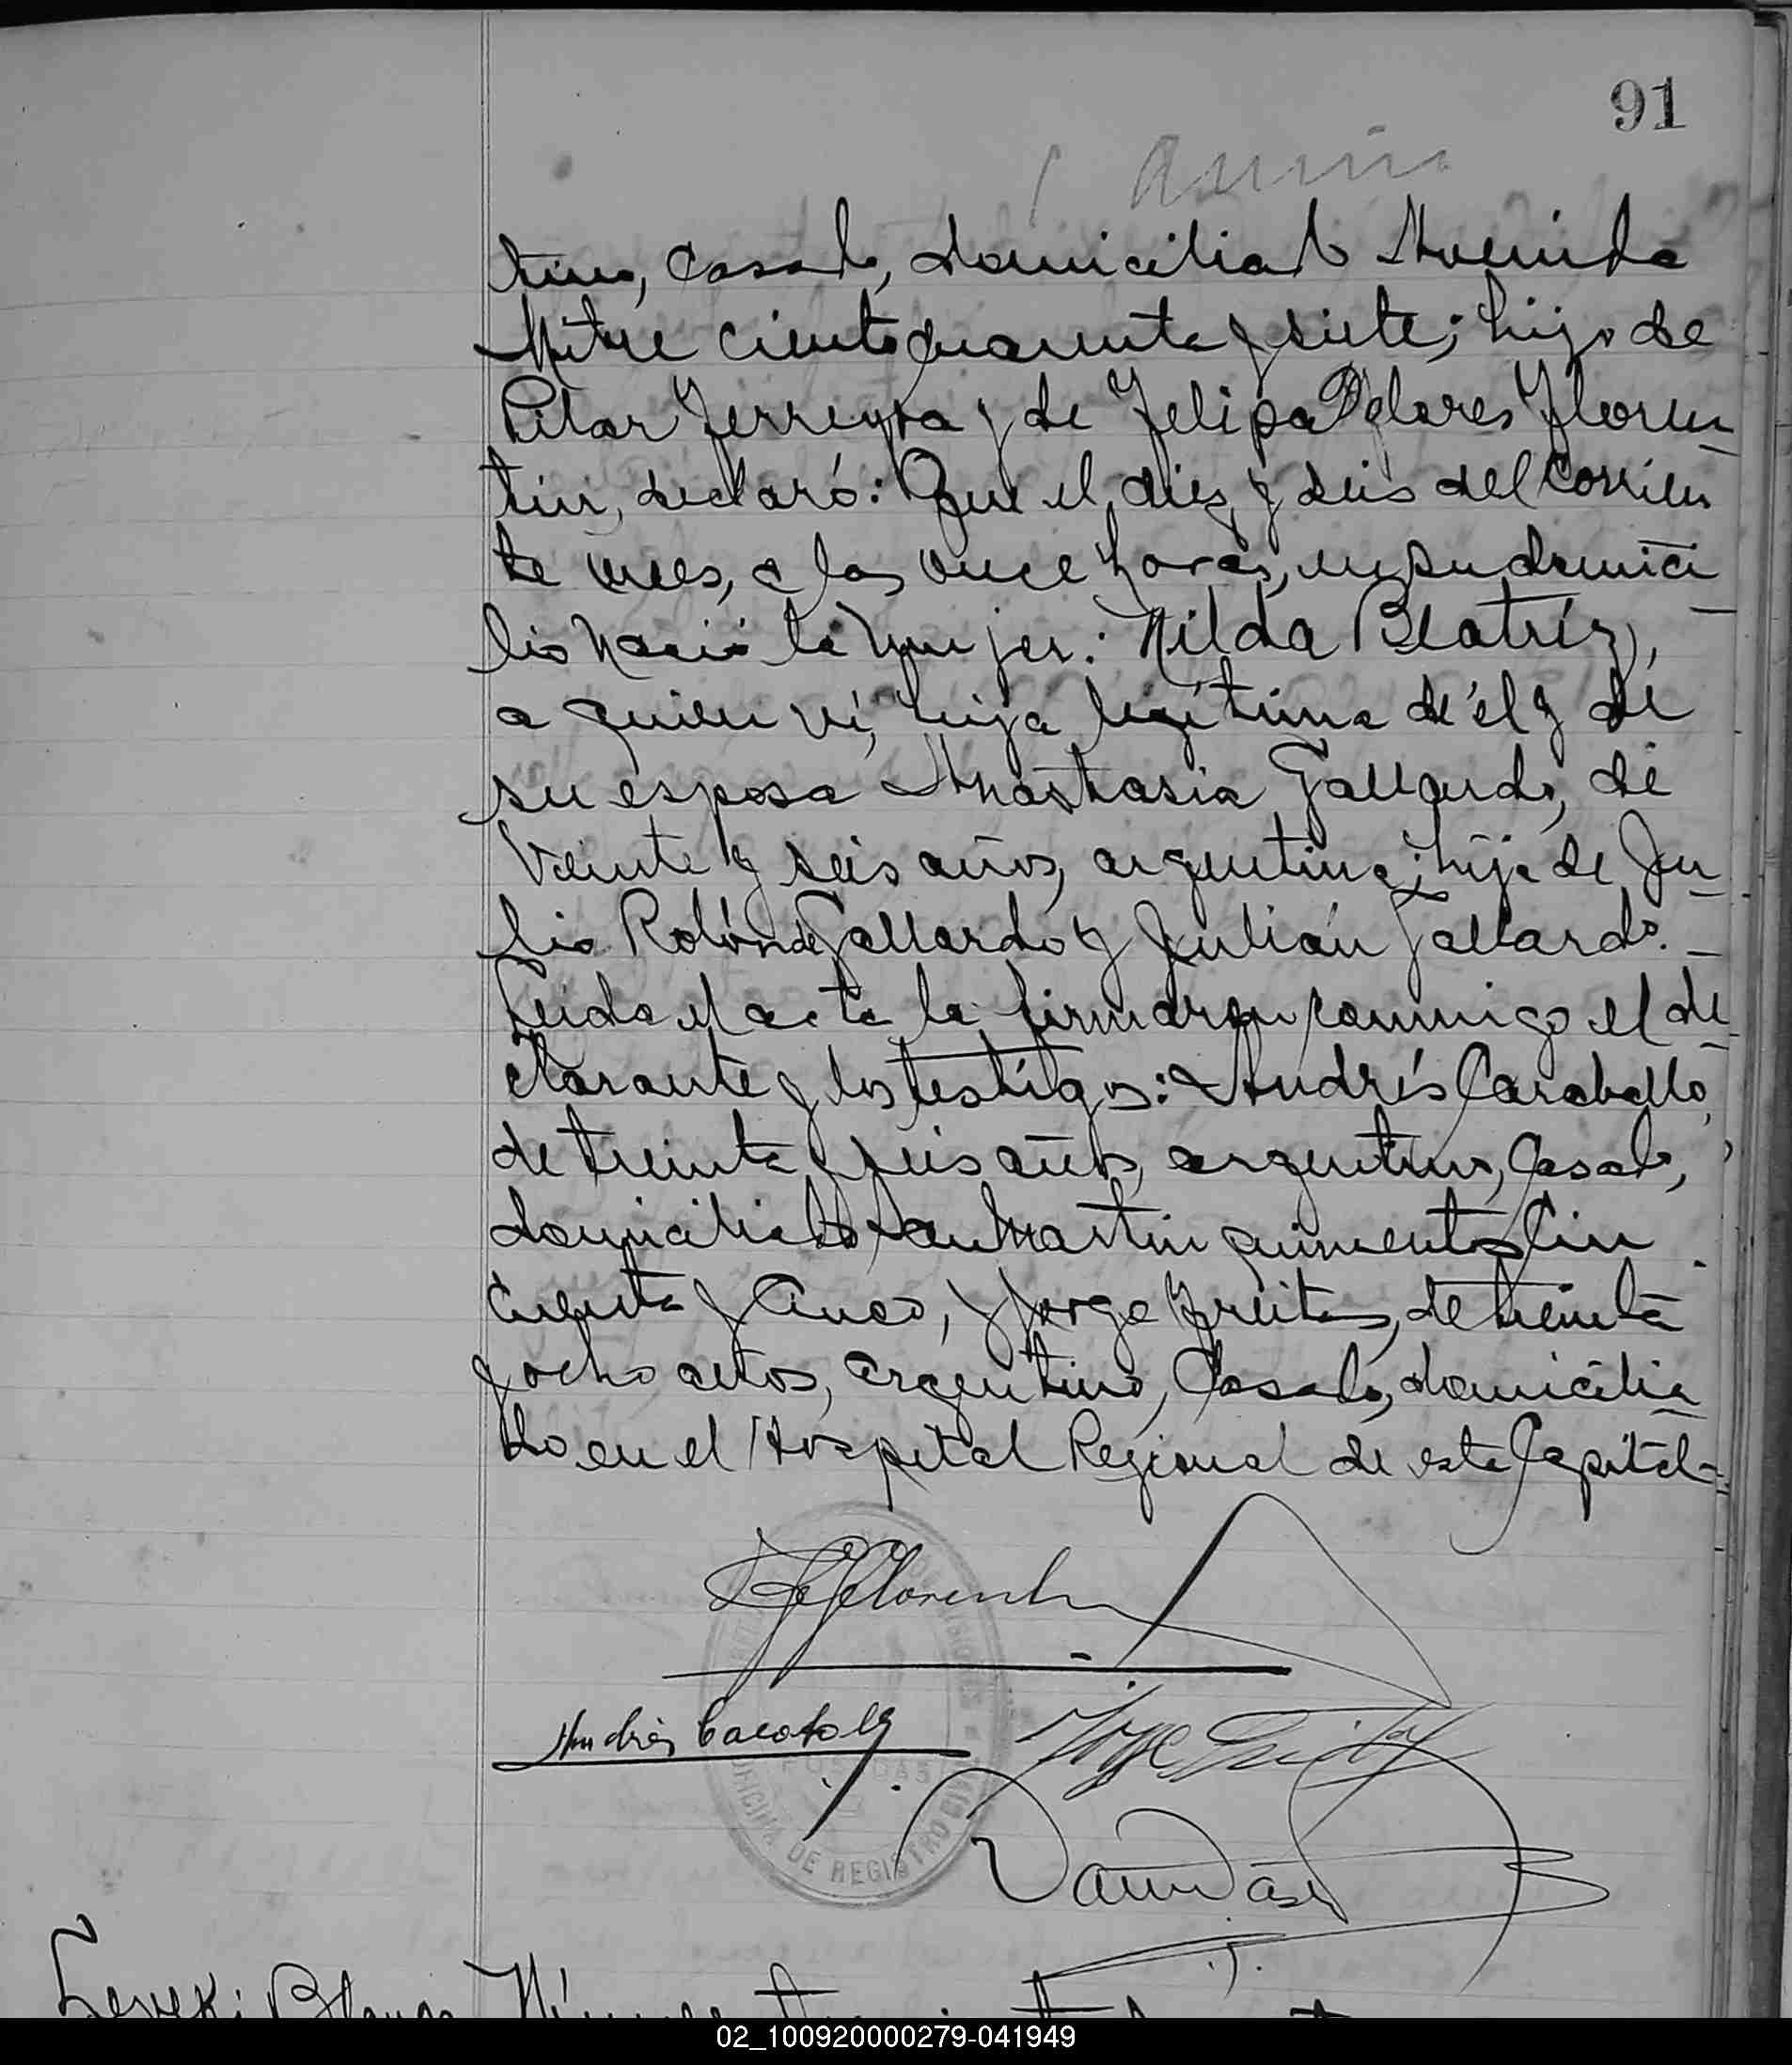 91
tino, casado, domiciliado Avenida
Mitre ciento cuarenta y siete; hijo de
Pilar Ferreyra y de Felipa Dolores Floren
tin, declaró: Que el diez y seis del corrien
te mes, a las once horas, en su domici
lio nació la mujer: Nilda Beatríz,
a quien ví, hija legítima de él y de
su esposa Anastasia Gallardo, de
veinte y seis años, argentina; hija de Ju
lia Rolón de Gallardo y Julián Gallardo.
Leida el acta la firmaron conmigo el de
clarante y los testigos: Andrés Caraballo,
de treinta y seis años, argentino, casado,
domiciliado San Martin quinientos cin
cuenta y cinco, y Jorge Freitas, de treinta
y ocho años, argentino, casado, domicilia
do en el Hospital Regional de esta Capital-
Andrés
Jorge Freitas
POSADAS
OFICINA DE REGISTRO CIVIL
02_100920000279-041949